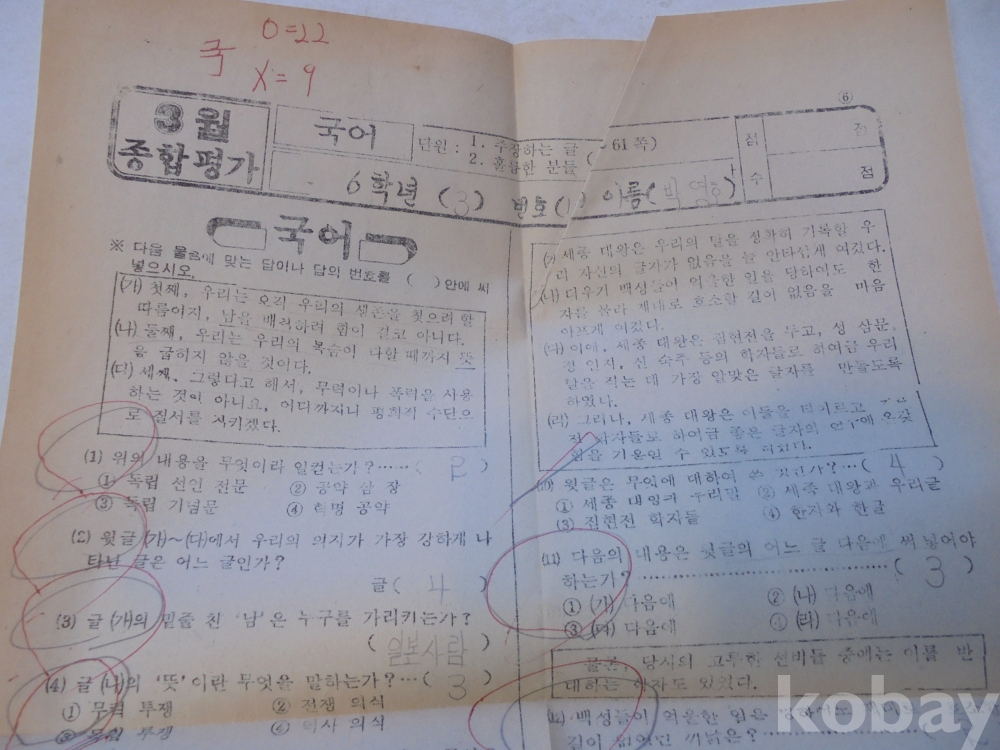 국 O=22
X=9
⑥
3월
종합평가
국어
단원 : 1. 주장하는 글
2. 훌륭한 분들 ( 61 쪽)
점수
점
6학년 (3) 번호(1 이름(박영호)
국어
※ 다음 물음에 맞는 답이나 답의 번호를 ( )안에 써
넣으시오.
(가) 첫째, 우리는 오직 우리의 생존을 찾으려 할
따름이지, 남을 배척하려 함이 결코 아니다.
(나) 둘째, 우리는 우리의 목숨이 다할 때까지 뜻
을 굽히지 않을 것이다.
(다) 세째, 그렇다고 해서, 무력이나 폭력을 사용
하는 것이 아니요, 어디까지나 평화적 수단으
로 질서를 지키겠다.
(1) 위의 내용을 무엇이라 일컫는가?…… ( 2 )
① 독립 선언 전문 ② 공약 삼 장
③ 독립 기념문 ④ 혁명 공약
(2) 윗글 (가)~(다)에서 우리의 의지가 가장 강하게 나
타난 글은 어느 글인가?
글( 4 )
(3) 글 (가)의 밑줄 친 '남'은 누구를 가리키는가?
( 일본사람 )
(4) 글 (나)의 '뜻'이란 무엇을 말하는가?…( 3 )
① 무력 투쟁 ② 전쟁 의식
③ 독립 투쟁 ④ 의식
(가) 세종 대왕은 우리의 말을 정확히 기록할 우
리 자신의 글자가 없음을 늘 안타깝게 여겼다.
(나) 더우기 백성들이 억울한 일을 당하여도 한
자를 몰라 제대로 호소할 길이 없음을 마음
아프게 여겼다.
(다) 이에, 세종 대왕은 집현전을 두고, 성 삼문,
정 인지, 신 숙주 등의 학자들로 하여금 우리
말을 적는 데 가장 알맞은 글자를 만들도록
하였다.
(라) 그러나, 세종 대왕은 이들을 타이르고
학자들로 하여금 좋은 글자의 연구에 온갖
힘을 기울일 수 있도록 하였다.
(10) 윗글은 무엇에 대하여 쓴 것인가?…( 4 )
① 세종 대왕과 우리말 ② 세종 대왕과 우리글
③ 집현전 학자들 ④ 한자와 한글
(11) 다음의 내용은 윗글의 어느 글 다음에 써 넣어야
하는가? ………… ( 3 )
① (가) 다음에 ② (나) 다음에
③ (다) 다음에 ④ (라) 다음에
물론, 당시의 고루한 선비들 중에는 이를 반
대하는 학자도 있었다.
(12) 백성들이 억울한 일을 당하여도
길이 없었던 까닭은?
kobay